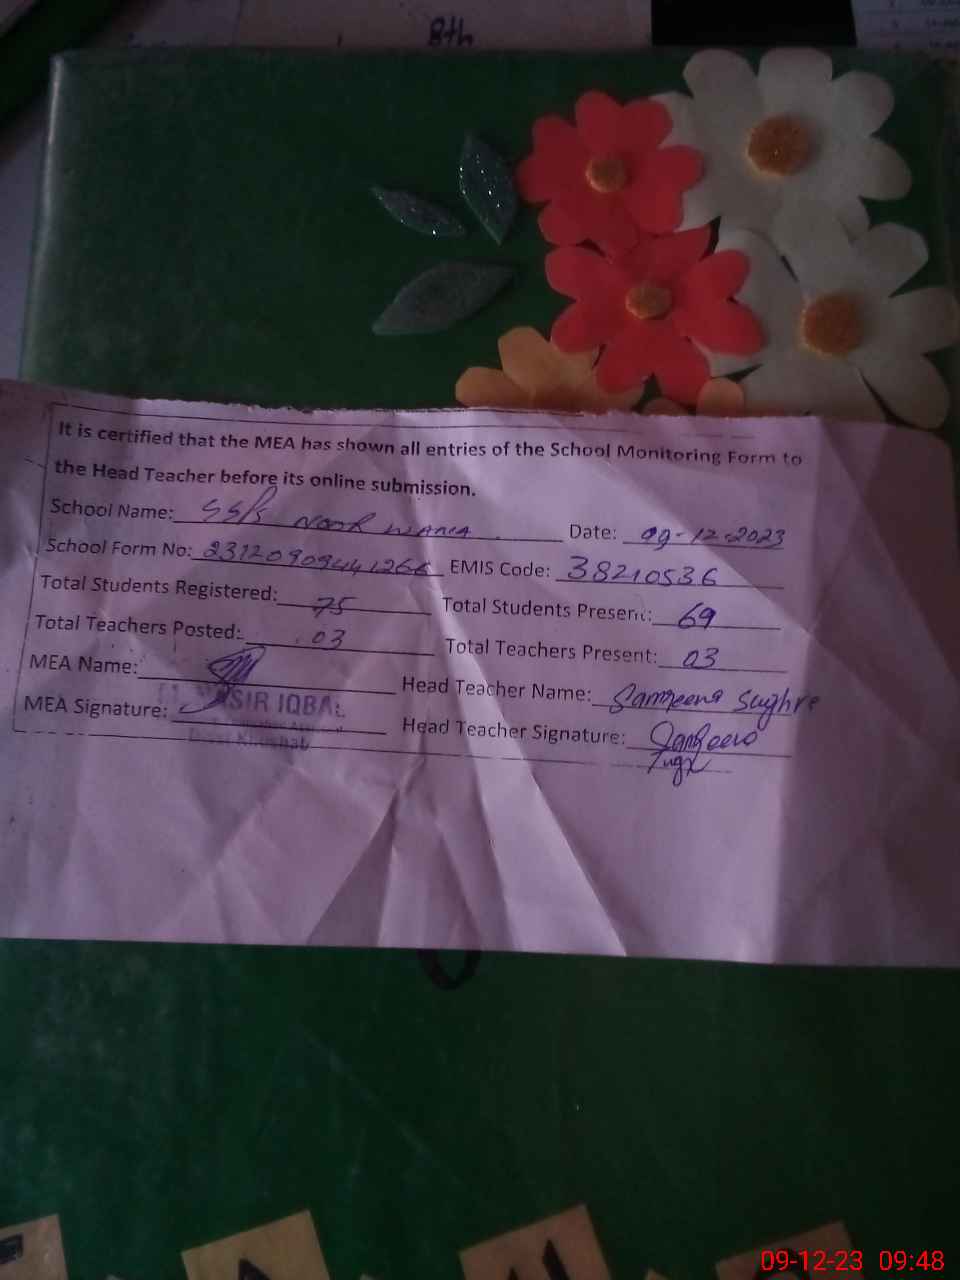 8th
It is certified that the MEA has shown all entries of the School Monitoring Form to
the Head Teacher before its online submission.
School Name: NOOR WANA Date: 09-12-2023
School Form No: EMIS Code: 38210536
Total Students Registered: 75 Total Students Present: 69
Total Teachers Posted: 03 Total Teachers Present: 03
MEA Name: Head Teacher Name: Sameena Sughra
SIR IQBAL
MEA Signature: Head Teacher Signature:
Khushab
09-12-23 09:48